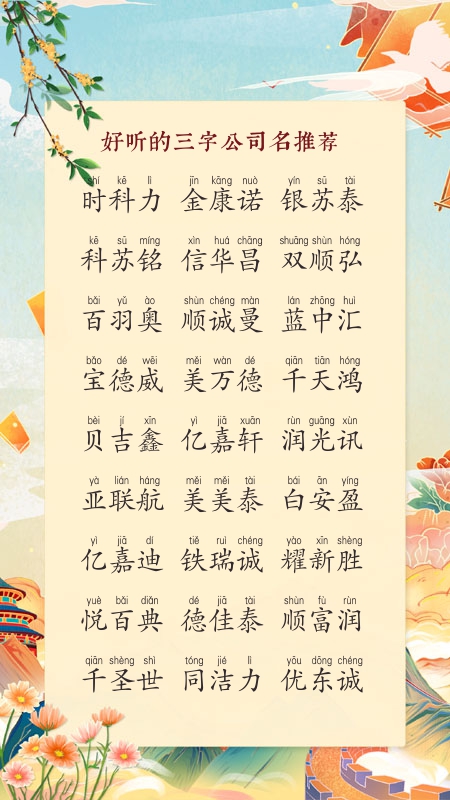 好听的三字公司名推荐
shí kē lì jīn kāng nuò yín sū tài
时科力 金康诺 银苏泰
kē sū míng xìn huá chāng shuāng shùn hóng
科苏铭 信华昌 双顺弘
bǎi yǔ ào shùn chéng màn lán zhōng huì
百羽奥 顺诚曼 蓝中汇
bǎo dé wēi měi wàn dé qiān tiān hóng
宝德威 美万德 千天鸿
bèi jí xīn yì jiā xuān rùn guāng xùn
贝吉鑫 亿嘉轩 润光讯
yà lián háng měi měi tài bái ān yíng
亚联航 美美泰 白安盈
yì jiā dí tiě ruì chéng yào xīn shèng
亿嘉迪 铁瑞诚 耀新胜
yuè bǎi diǎn dé jiā tài shùn fù rùn
悦百典 德佳泰 顺富润
qiān shèng shì tóng jié lì yōu dōng chéng
千圣世 同洁力 优东诚